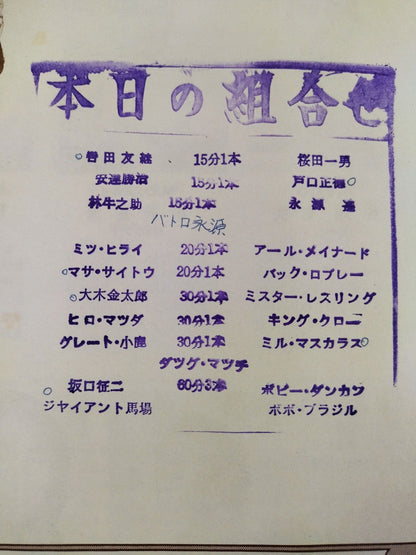 本日の組合せ
○誉田友継 、 15分1本 桜田一男
安達勝治 15分1本 戸口正徳○
林牛之助 15分1本 永源遙
バトロ永源
ミツ・ヒライ 20分1本 アール・メイナード
○マサ・サイトウ 20分1本 バック・ロブレー
○大木金太郎 30分1本 ミスター・レスリング
ヒロ・マツダ 30分1本 キング・クロー
グレート・小鹿 30分1本 ミル・マスカラス○
ダツグ・マツチ
○坂口征二 60分3本 ボビー・ダンカン
ジヤイアント馬場 ボボ・ブラジル